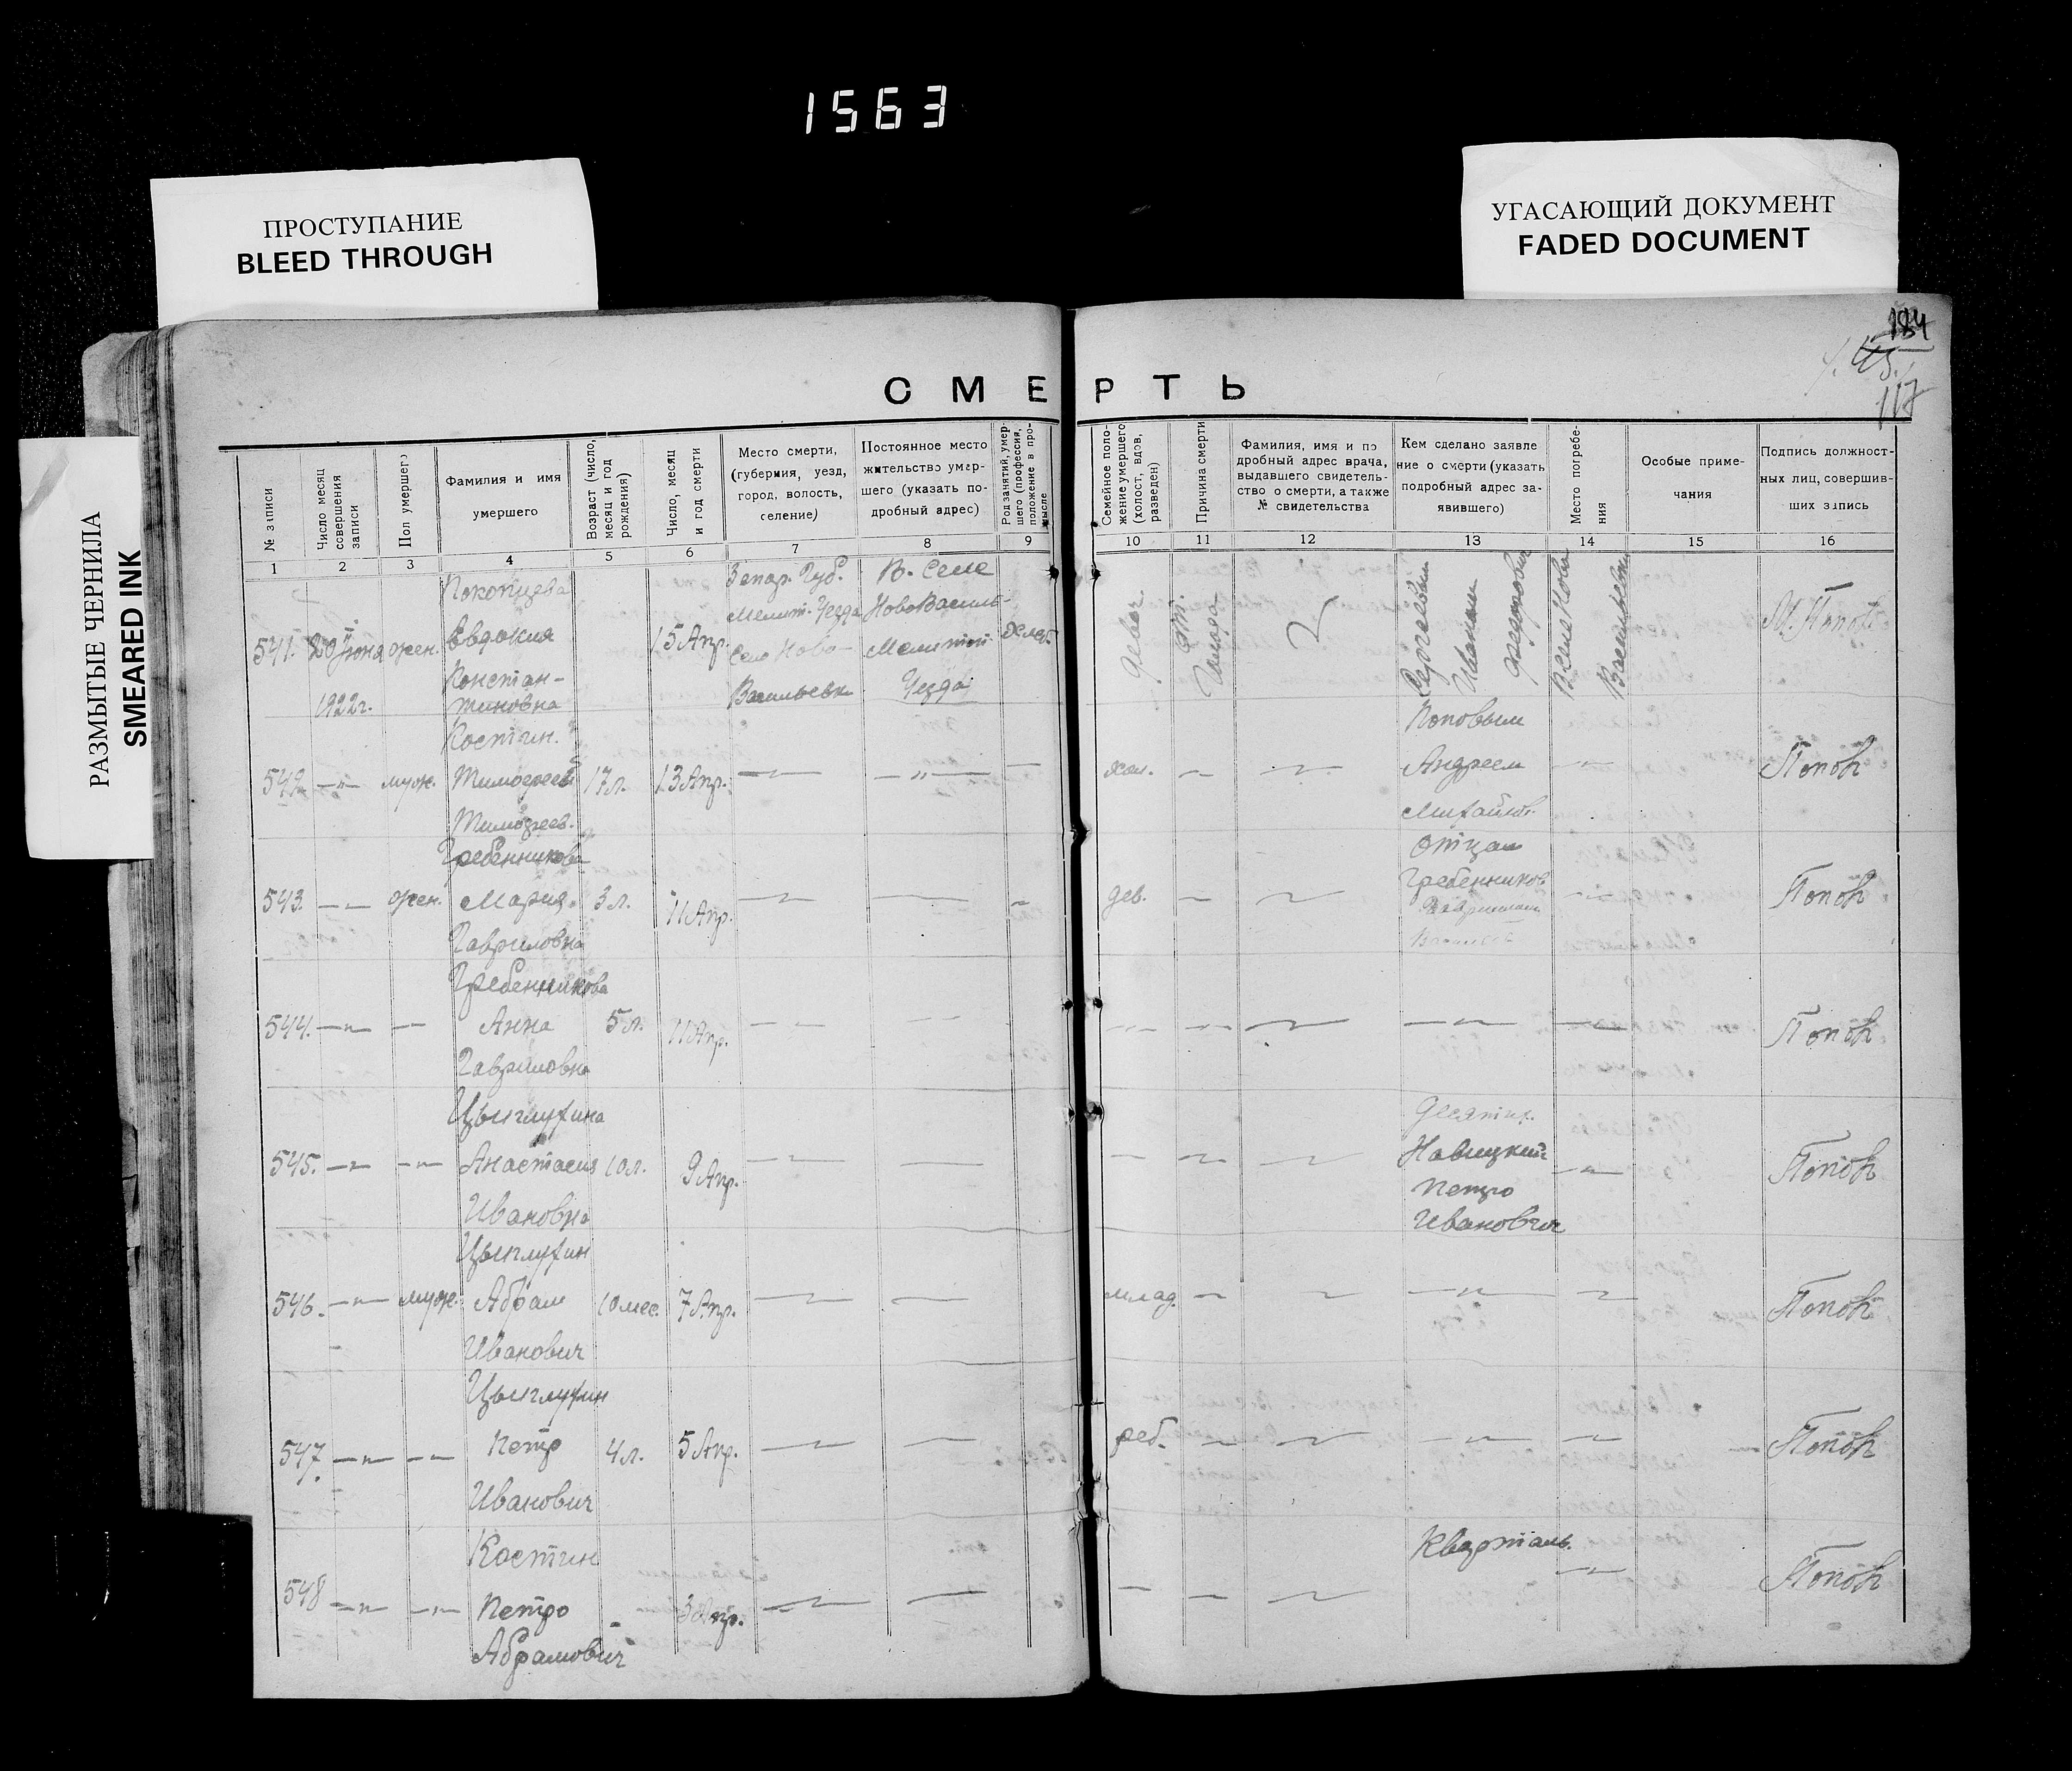 1563
ПРОСТУПАНИЕ
BLEED THROUGH
УГАСАЮЩИЙ ДОКУМЕНТ
FADED DOCUMENT
РАЗМЫТЫЕ ЧЕРНИЛА
SMEARED INK
184
117
СМЕРТЬ
№ записи
Число месяц
совершения
записи
Пол умершего
Фамилия и имя
умершего
Возраст (число,
месяц и год
рождения)
Число, месяц
и год смерти
Место смерти,
(губерния, уезд,
город, волость,
селение)
Постоянное место
жительство умер-
шего (указать по-
дробный адрес)
Род занятий, умер-
шего (профессия,
положение в про-
мысле
Семейное поло-
жение умершего
(холост, вдов,
разведен)
Причина смерти
Фамилия, имя и по
дробный адрес врача,
выдавшего свидетель-
ство о смерти, а также
№ свидетельства
Кем сделано заявле
ние о смерти (указать
подробный адрес за-
явившего)
Место погребе-
ния
Особые приме-
чания
Подпись должност-
ных лиц, совершив-
ших запись
1 2 3 4 5 6 7 8 9 10 11 12 13 14 15 16
541. 20 Июня 1922г.
жен.
Евдокия
Констан-
тиновна
15 Апр.
Запор. Губ.
Мелит. Уезда
Село Ново-
Васильевк
В. Селе
НовоВасиль-
Мелитоп
Уезда
Хлеб.
девоч.
От.
Голода
Сергеевым
Иваном
Федорович
В селе Ново
Васильевки
М. Попов
542. —„— муж.
Костин.
Тимофей
Тимофеев.
17 л. 13 Апр. — —„— —
хол. — —
Поповым
Андреем
Михайлов.
— Попов
543. —„— жен.
Гребенникова
Мария
Гавриловна
3 л. 11 Апр. — — —
дев. — —
Отцом
Гребенников
Гавриилом
— Попов
544. —„— —
Гребенникова
Анна
Гавриловна
5 л. 11 Апр. — —
— — — — — Попов
545. —„— —„—
Цынглухина
Анастасия
Ивановна
10 л. 9 Апр. — —
— — —
Десятик.
Новицкий
Петро
Иванович
—„— Попов
546. —„— муж.
Цынглухин
Абрам
Иванович
10 мес. 7 Апр. — —
млад. — — —„— — Попов
547. —„— —„—
Цынглухин
Петр
Иванович
4 л. 5 Апр. — —
реб. — — —„— — Попов
548 —„— —„—
Костин
Петро
Абрамович
3 Апр. — —
— — —
Квартальн.
— Попов